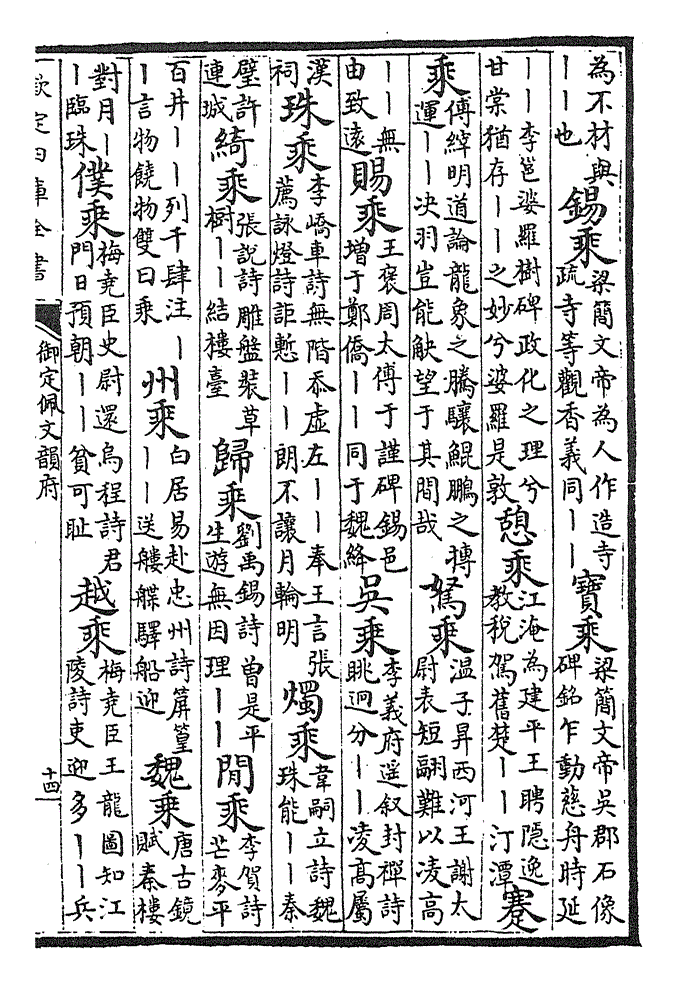 為不材與
丨丨也
錫乘
梁簡文帝為人作造寺
疏寺等觀香義同丨丨
寶乘
梁簡文帝吳郡石像
碑銘乍動慈舟時延
丨丨李邕娑羅樹碑政化之理兮
甘棠猶存丨丨之妙兮娑羅是敦
憩乘
江淹為建平王聘隱逸
教稅駕舊楚丨丨汀潭
蹇
乘
傅縡明道論龍象之騰驤鯤鵬之摶
運丨丨决羽豈能觖望于其間哉
駑乘
温子昇西河王謝太
尉表短翮難以凌高
丨丨無
由致遠
賜乘
王褒周太傅于謹碑錫邑
增于鄭僑丨丨同于魏絳
吳乘
李義府遥叙封禪詩
眺迥分丨丨凌高屬
漢
祠
珠乘
李嶠車詩無階忝虚左丨丨奉王言張
薦詠燈詩詎慙丨丨朗不讓月輪明
燭乘
韋嗣立詩魏
珠能丨丨秦
璧許
連城
綺乘
張說詩雕盤裝草
樹丨丨結樓臺
歸乘
劉禹錫詩曾是平
生遊無因理丨丨
閒乘
李賀詩
芒麥平
百井丨丨列千肆注丨
丨言物饒物雙曰乘
州乘
白居易赴忠州詩屏篁
丨丨送艛艓驛船迎
魏乘
唐古鏡
賦秦樓
對月丨
丨臨珠
僕乘
梅堯臣史尉還烏程詩君
門日預朝丨丨貧可耻
越乘
梅堯臣王龍圖知江
陵詩吏迎多丨丨兵
欽定四庫全書
御定佩文韻府
十四